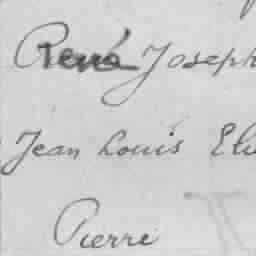 René Joseph
Jean Louis
Pierre